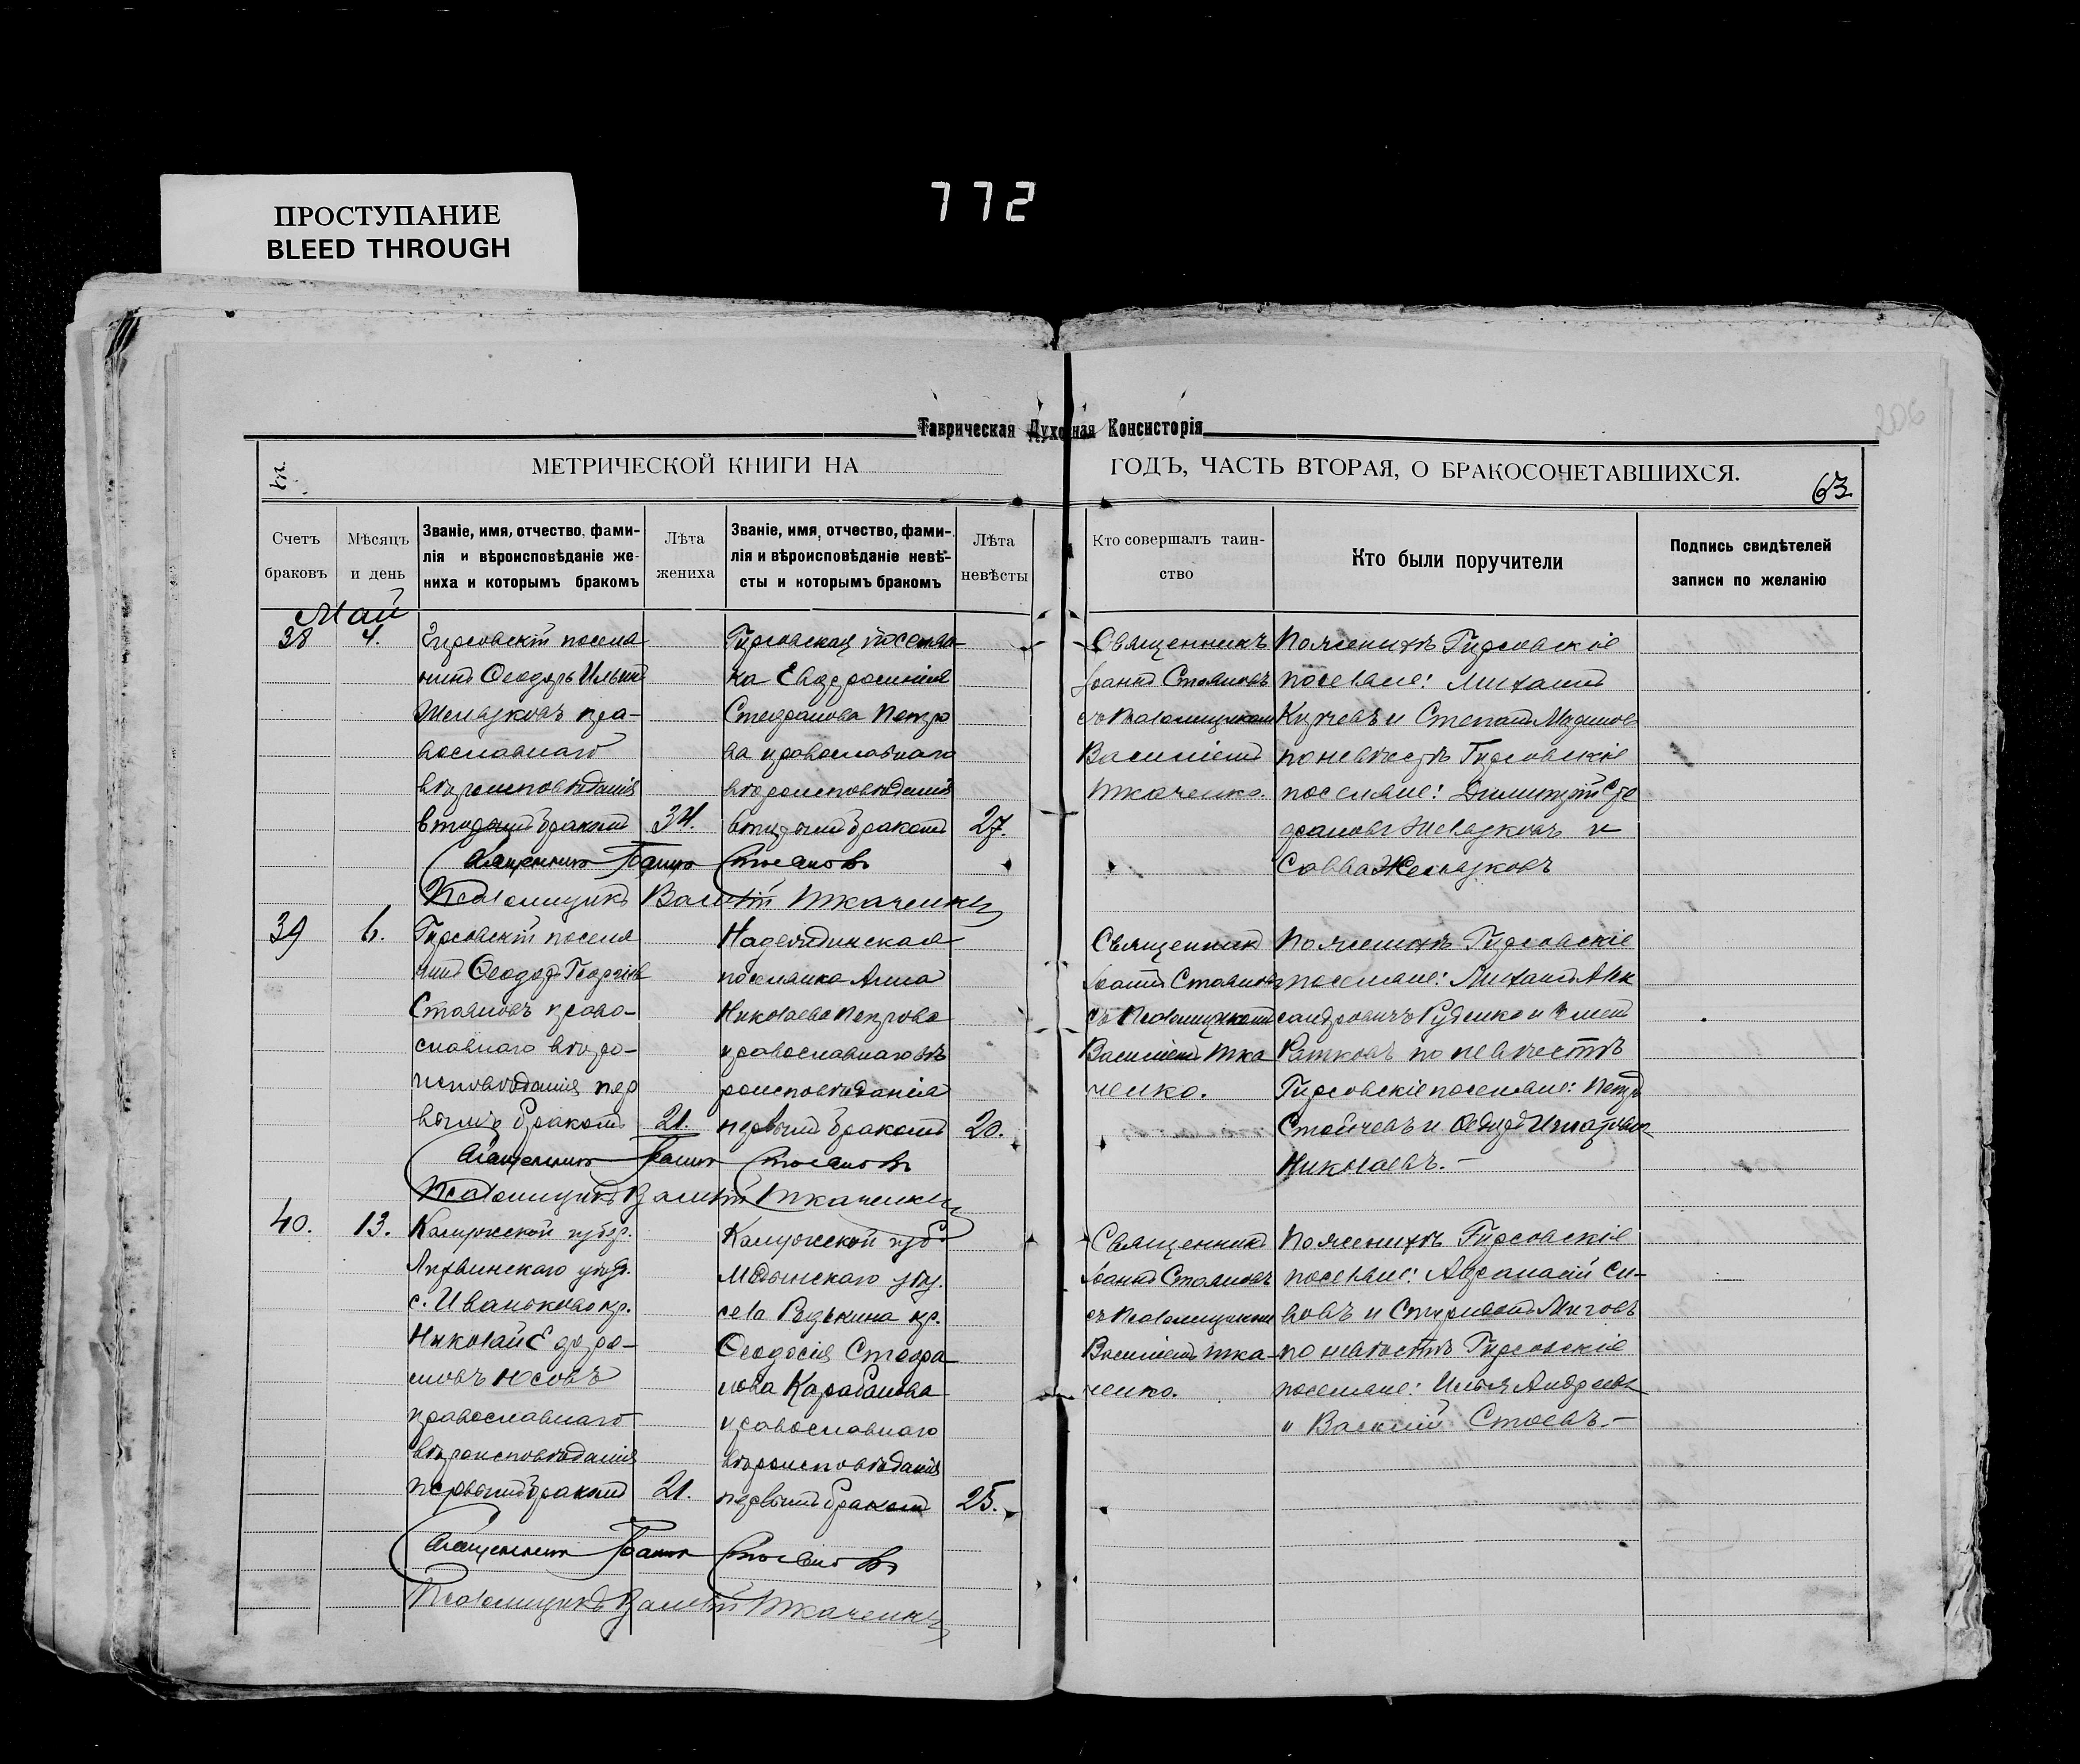 ПРОСТУПАНИЕ
BLEED THROUGH
772
206
Таврическая Духовная Консисторія
МЕТРИЧЕСКОЙ КНИГИ НА ГОДЪ, ЧАСТЬ ВТОРАЯ, О БРАКОСОЧЕТАВШИХСЯ.
63
Счетъ браковъ
Мѣсяцъ и день
Званіе, имя, отчество, фами-
лія и вѣроисповѣданіе же-
ниха и которымъ бракомъ
Лѣта жениха
Званіе, имя, отчество, фами-
лія и вѣроисповѣданіе невѣ-
сты и которымъ бракомъ
Лѣта невѣсты
Кто совершалъ таин-
ство
Кто были поручители
Подпись свидѣтелей
записи по желанію
Май
38
4.
Гирсовскій поселя
нинъ Ѳеодоръ Ильинъ
Желязковъ пра-
вославнаго
вѣроисповѣданія
вторымъ бракомъ
34.
Гирсовская поселян
ка Евфросинія
Стефанова Петро
ва православнаго
вѣроисповѣданія
вторымъ бракомъ
27.
Священникъ
Іоаннъ Стояновъ
съ Псаломщикомъ
Василіемъ
Ткаченко.
По женихѣ Гирсовскіе
поселяне: Михаилъ
Кирчевъ и Степанъ
по невѣстѣ Гирсовскіе
поселяне: Димитрій Сте
фановъ Желязковъ и
Савва Желязковъ
Священникъ Іоаннъ Стояновъ
Псаломщикъ Василій Ткаченко
39
6.
Гирсовскій поселя
нинъ Ѳеодоръ Георгіев
Стояновъ право-
славнаго вѣро-
исповѣданія пер
вымъ бракомъ
21.
Надеждинская
поселянка Анна
Николаева Петрова
православнаго вѣ
роисповѣданія
первымъ бракомъ
20.
Священникъ
Іоаннъ Стояновъ
съ Псаломщикомъ
Василіемъ Тка
ченко.
По женихѣ Гирсовскіе
поселяне: Михаилъ Алек
сандровичъ Руденко и
Ратковъ по невѣстѣ
Гирсовскіе поселяне: Петръ
Стойчевъ и Ѳеодоръ
Николаевъ.-
Священникъ Іоаннъ Стояновъ
Псаломщикъ Василій Ткаченко
40.
13.
Калужской губер.
Лихвинскаго уѣзд.
с. Иваньково кр.
Николай Ефра-
мовъ Юсовъ
православнаго
вѣроисповѣданія
первымъ бракомъ
21.
Калужской губ.
Медынскаго уѣз.
села Редькина кр.
Ѳеодосія Стефа
нова Карабанова
православнаго
вѣроисповѣданія
первымъ бракомъ
25.
Священникъ
Іоаннъ Стояновъ
съ Псаломщикомъ
Василіемъ Тка-
ченко.
По женихѣ Гирсовскіе
поселяне: Аѳанасій Си-
вовъ и Стиліанъ Миговъ
по невѣстѣ Гирсовскіе
поселяне: Илья Андреевъ
и Василій Стоевъ.-
Священникъ Іоаннъ Стояновъ
Псаломщикъ Василій Ткаченко